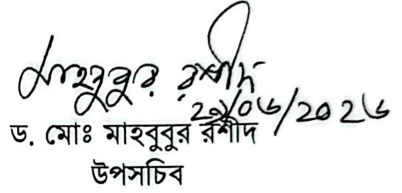 মাহবুবুর রশীদ
২১/০৬/২০২৬
ড. মোঃ মাহবুবুর রশীদ
উপসচিব